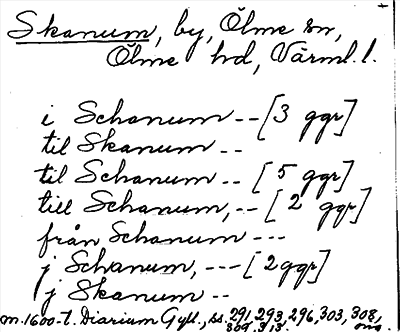 Skanum, by, Ölme sn,
Ölme hd, Värml. l.
i Schanum -- [3 ggr]
til Skanum --
til Schanum -- [5 ggr]
till Schanum, -- [2 ggr]
från Schanum ---
j Schanum, --- [2 ggr]
j Skanum --
m. 1600-t. Diarium Gyll., ss. 291, 293, 296, 303, 308,
309, 313